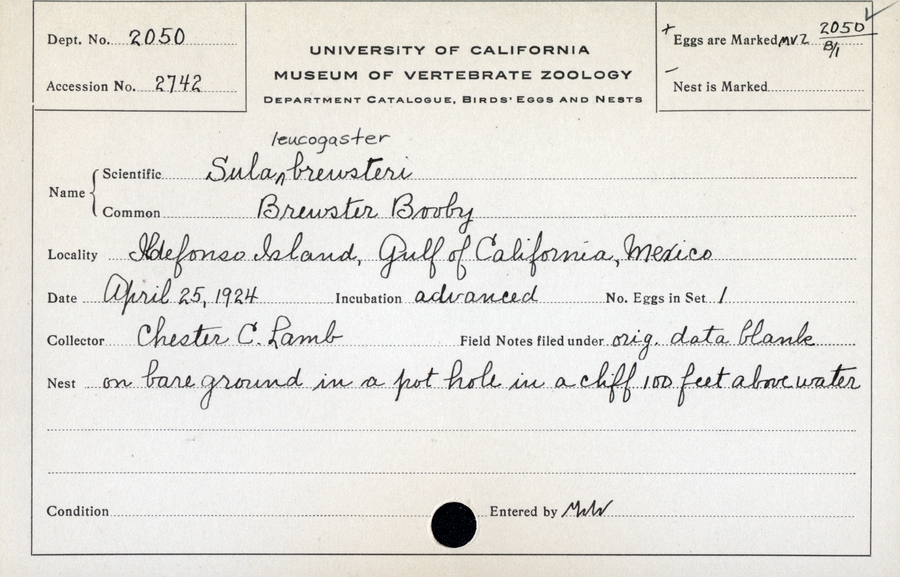 Dept. No. 2050
Accession No. 2742
UNIVERSITY OF CALIFORNIA
MUSEUM OF VERTEBRATE ZOOLOGY
DEPARTMENT CATALOGUE, BIRDS' EGGS AND NESTS
+ Eggs are Marked MVZ 2050/B/1 ✓
– Nest is Marked
leucogaster
Name { Scientific Sula ^ brewsteri
Common Brewster Booby
Locality Ildefonso Island, Gulf of California, Mexico
Date April 25, 1924 Incubation advanced No. Eggs in Set 1
Collector Chester C. Lamb Field Notes filed under orig. data blank
Nest on bare ground in a pot hole in a cliff 100 feet above water
Condition Entered by